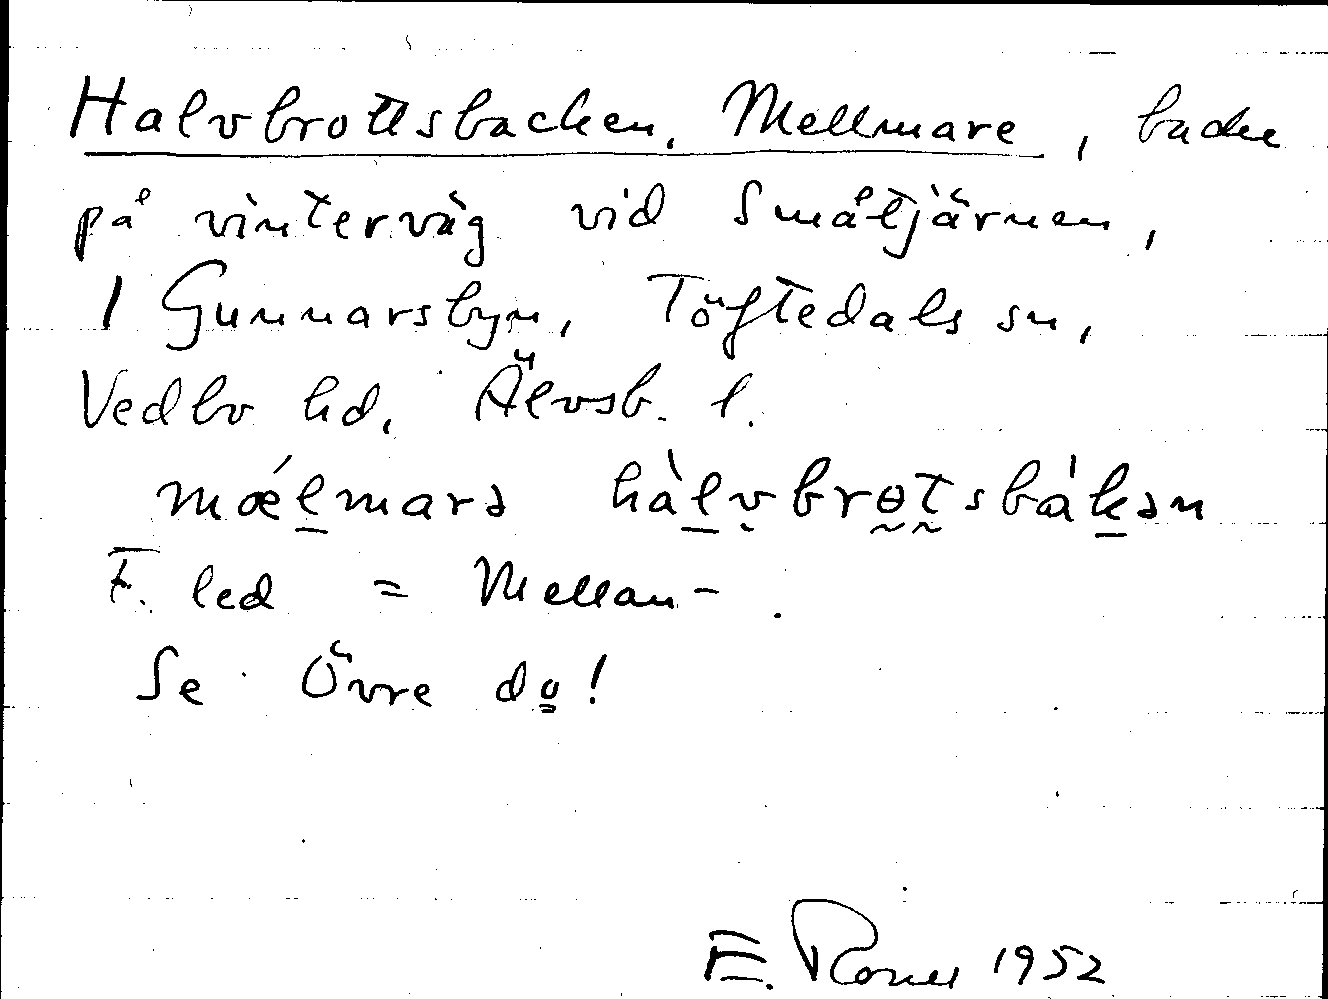 Halvbrottsbacken, Mellmare, backe
på vinterväg vid Småtjärnen,
1 Gunnarsbyn, Töftedals sn,
Vedbo hd, Älvsb. l.
mǽlmarə hàlvbrɵtsbákən
F. led = Mellan-.
Se Övre do!
E. 1952